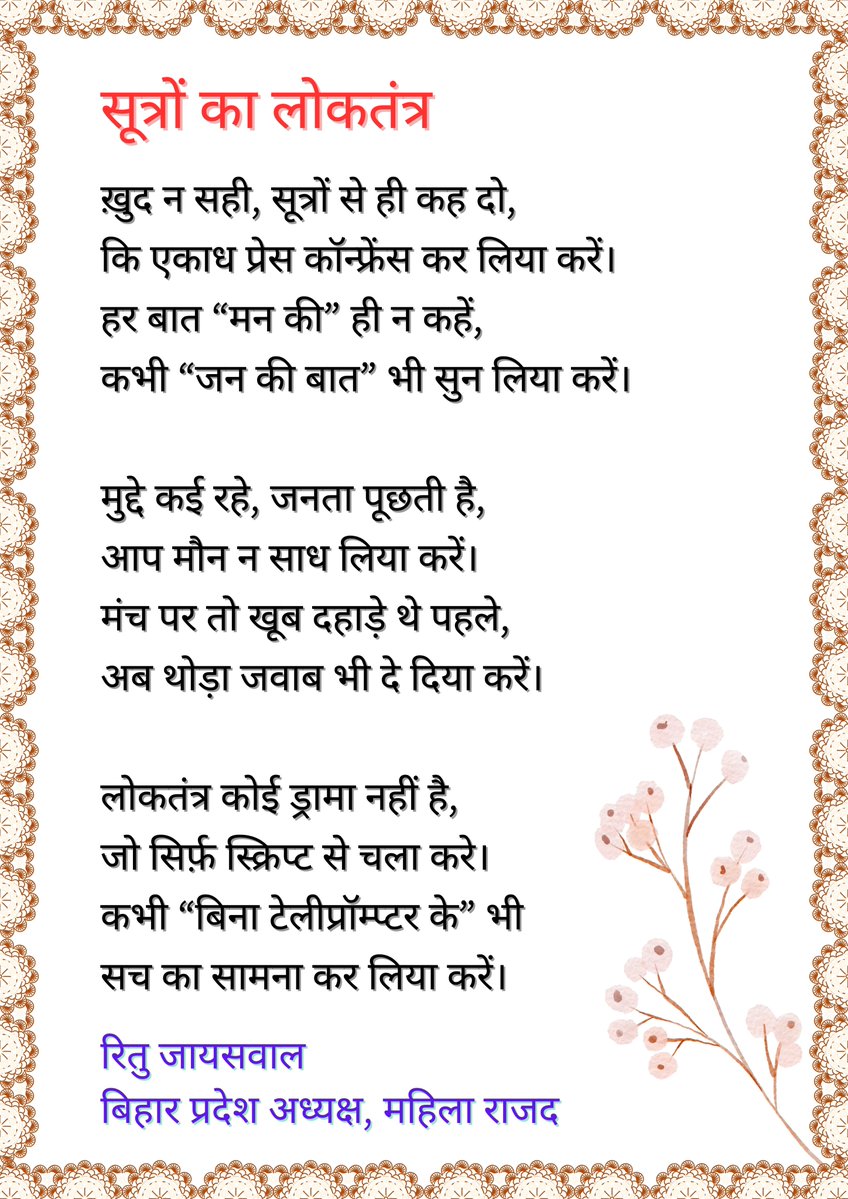 सूत्रों का लोकतंत्र
ख़ुद न सही, सूत्रों से ही कह दो,
कि एकाध प्रेस कॉन्फ्रेंस कर लिया करें।
हर बात “मन की” ही न कहें,
कभी “जन की बात” भी सुन लिया करें।
मुद्दे कई रहे, जनता पूछती है,
आप मौन न साध लिया करें।
मंच पर तो खूब दहाड़े थे पहले,
अब थोड़ा जवाब भी दे दिया करें।
लोकतंत्र कोई ड्रामा नहीं है,
जो सिर्फ़ स्क्रिप्ट से चला करे।
कभी “बिना टेलीप्रॉम्प्टर के” भी
सच का सामना कर लिया करें।
रितु जायसवाल
बिहार प्रदेश अध्यक्ष, महिला राजद